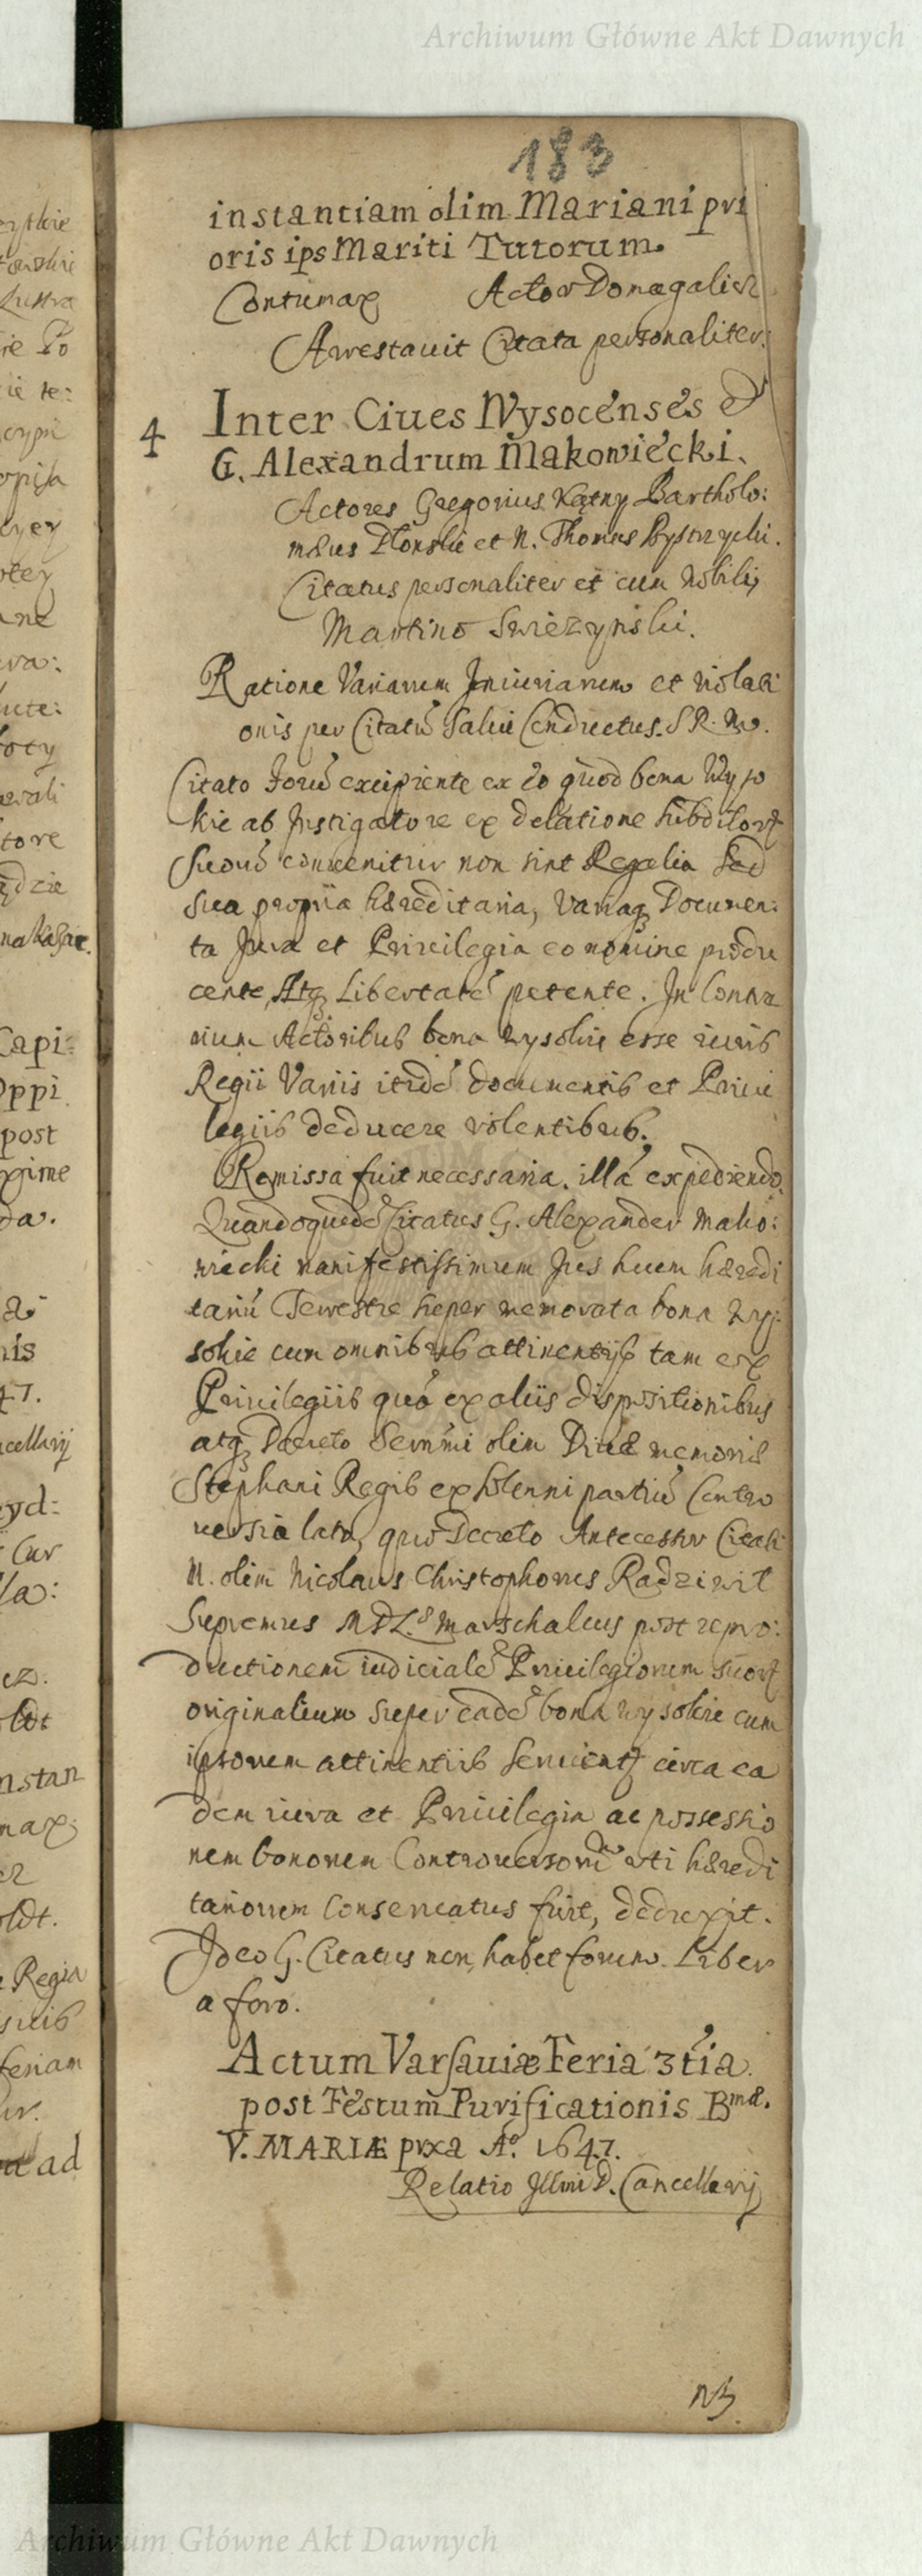 Archiwum Główne Akt Dawnych
183
instantiam olim Mariani pri
oris ips Mariti Tutorum.
Contumax Actor Donagalicz
Arrestauit Citata personaliter.
4 Inter Ciues Wysocenses et
G. Alexandrum Makowiecki.
Actores Gregorius Kątny Bartholo:
mæus Płonski et N. Thomas Bystrzycki.
Citatus personaliter et cum Nobili
Martino Swiezynski.
Ratione Variarum Iniuriarum et violati
onis per Citatū Salui Conductus S R. M.
Citato forū excipiente ex eo quod bona Wyso
kie ab Instigatore ex delatione subditorꝝ
suorū conuenitur non sint Regalia sed
sua propria hæreditaria, Variaq Documen:
ta Jura et Priuilegia eo nomine produ
cente, Atq Libertatē petente. In Contra
rium Actoribus bona Wysokie esse iuris
Regii Variis itidē documentis et Priui
legiis deducere volentibus.
Remissa fuit necessaria, illā expediendo
Quandoquidē Citatus G. Alexander Mako:
wiecki manifestissimum Jus suum hæredi
tariū Terrestre super memorata bona Wy:
sokie cum omnibus attinentijs tam ex
Priuilegiis quā ex aliis dispositionibus
atq Decreto Serenmi olim Diuæ memoriæ
Stephani Regis ex solenni partiū Contro
uersia lato, quo Decreto Antecessor Citati
N. olim Nicolaus Christophorus Radziwil
Supremus M D L. Marschalcus post repro:
ductionem iudicialē Priuilegiorum suorꝝ
originalium super eadē bona Wysokie cum
ipsorum attinentiis seruientꝫ circa ea
dem iura et Priuilegia ac possessio
nem bonorum Controuersorū uti hæredi
tariorum conseruatus fuit, deduxit.
Ideo G. Citatus non habet forum. Liber
a foro.
Actum Varsauiæ Feria 3tia
post Festum Purificationis Bmæ.
V. MARIÆ prxa Ao. 1647.
Relatio Illmi D. Cancellarij
Archiwum Główne Akt Dawnych